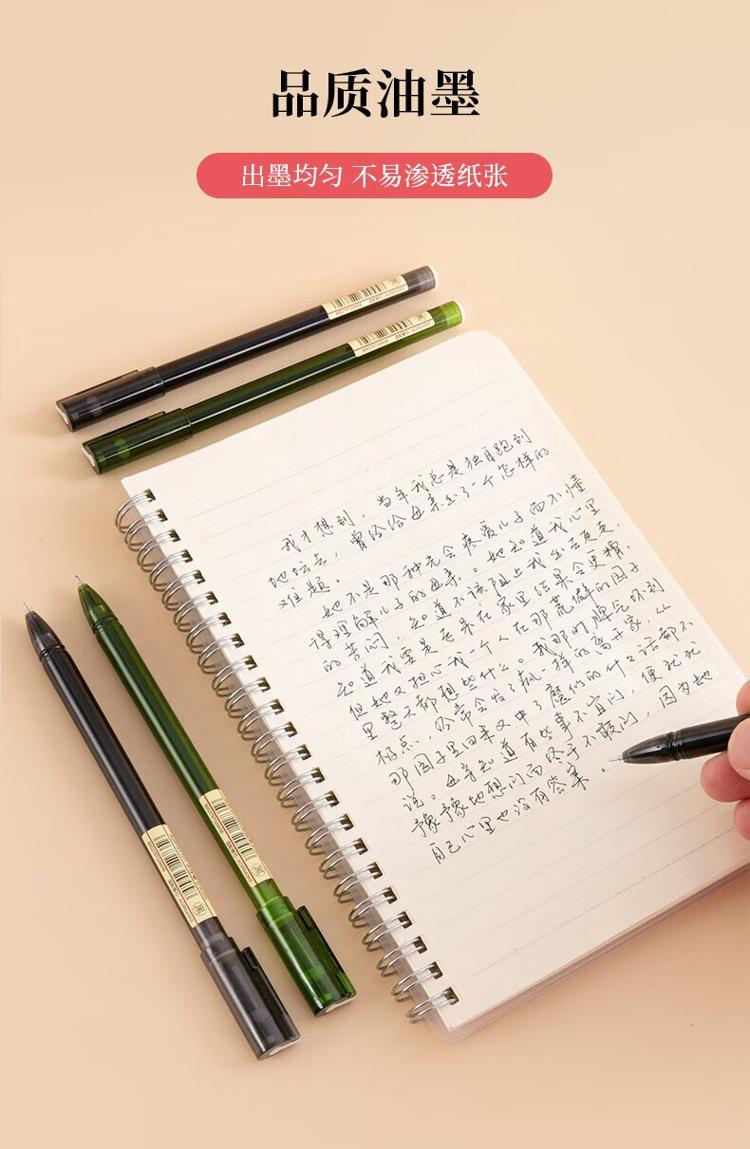 品质油墨
出墨均匀 不易渗透纸张
我才想到，当年我总是独自跑到
地坛去，曾给母亲出了一个怎样的
难题。
她不是那种光会疼爱儿子而不懂
得理解儿子的母亲。她知道我心里
的苦闷，知道不该阻止我出去走走，
知道我要是老呆在家里结果会更糟，
但她又担心我一个人在那荒僻的园子
里整天都想些什么。我那时脾气坏到
极点，经常会发了疯一样的离开家，从
那园子里回来又中了魔似的什么话都不
说。母亲知道有些事不宜问，便犹犹
豫豫地想问而终于不敢问，因为她
自己心里也没有答案。